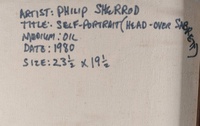 ARTIST: PHILIP SHERROD
TITLE: SELF-PORTRAIT (HEAD-OVER SABRETT)
MEDIUM: OIL
DATE: 1980
SIZE: 23½ X 19½